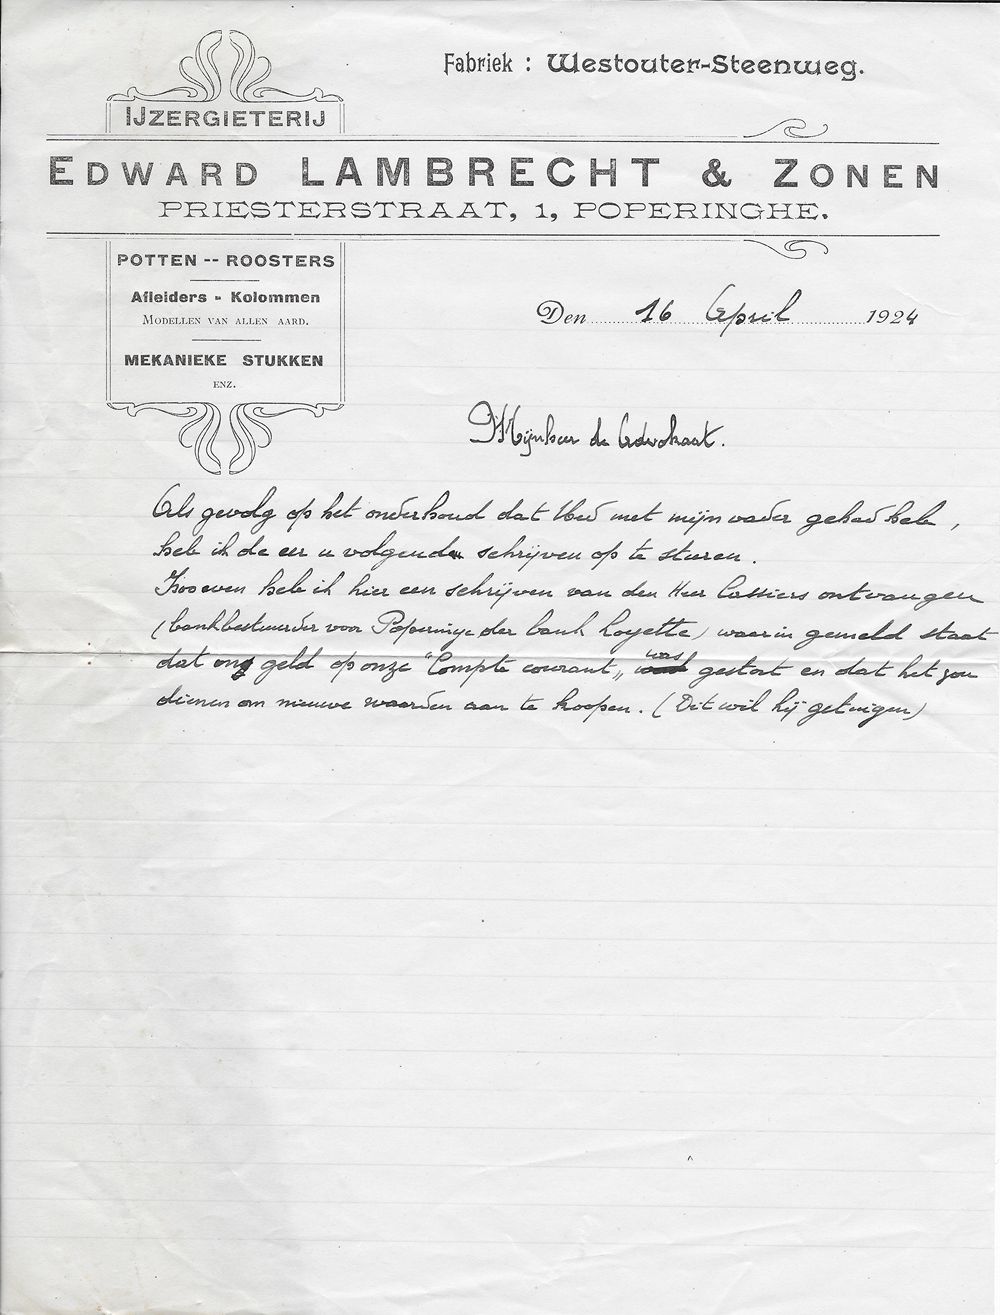 Fabriek : Westouter-Steenweg.
IJZERGIETERIJ
EDWARD LAMBRECHT & ZONEN
PRIESTERSTRAAT, 1, POPERINGHE.
POTTEN -- ROOSTERS
Afleiders - Kolommen
MODELLEN VAN ALLEN AARD.
MEKANIEKE STUKKEN
ENZ.
Den 16 April 1924
Mijnheer de Advokaat.
Als gevolg op het onderhoud dat UEd met mijn vader gehad heb,
heb ik de eer u volgende schrijven op te sturen.
Zooeven heb ik hier een schrijven van den Heer Cassiers ontvangen
(bankbestuurder voor Poperinge der bank Loyette) waarin gemeld staat
dat ons geld op onze "Compte courant" was gestort en dat het zou
dienen om nieuwe waarden aan te koopen. (Dit wil hij getuigen)